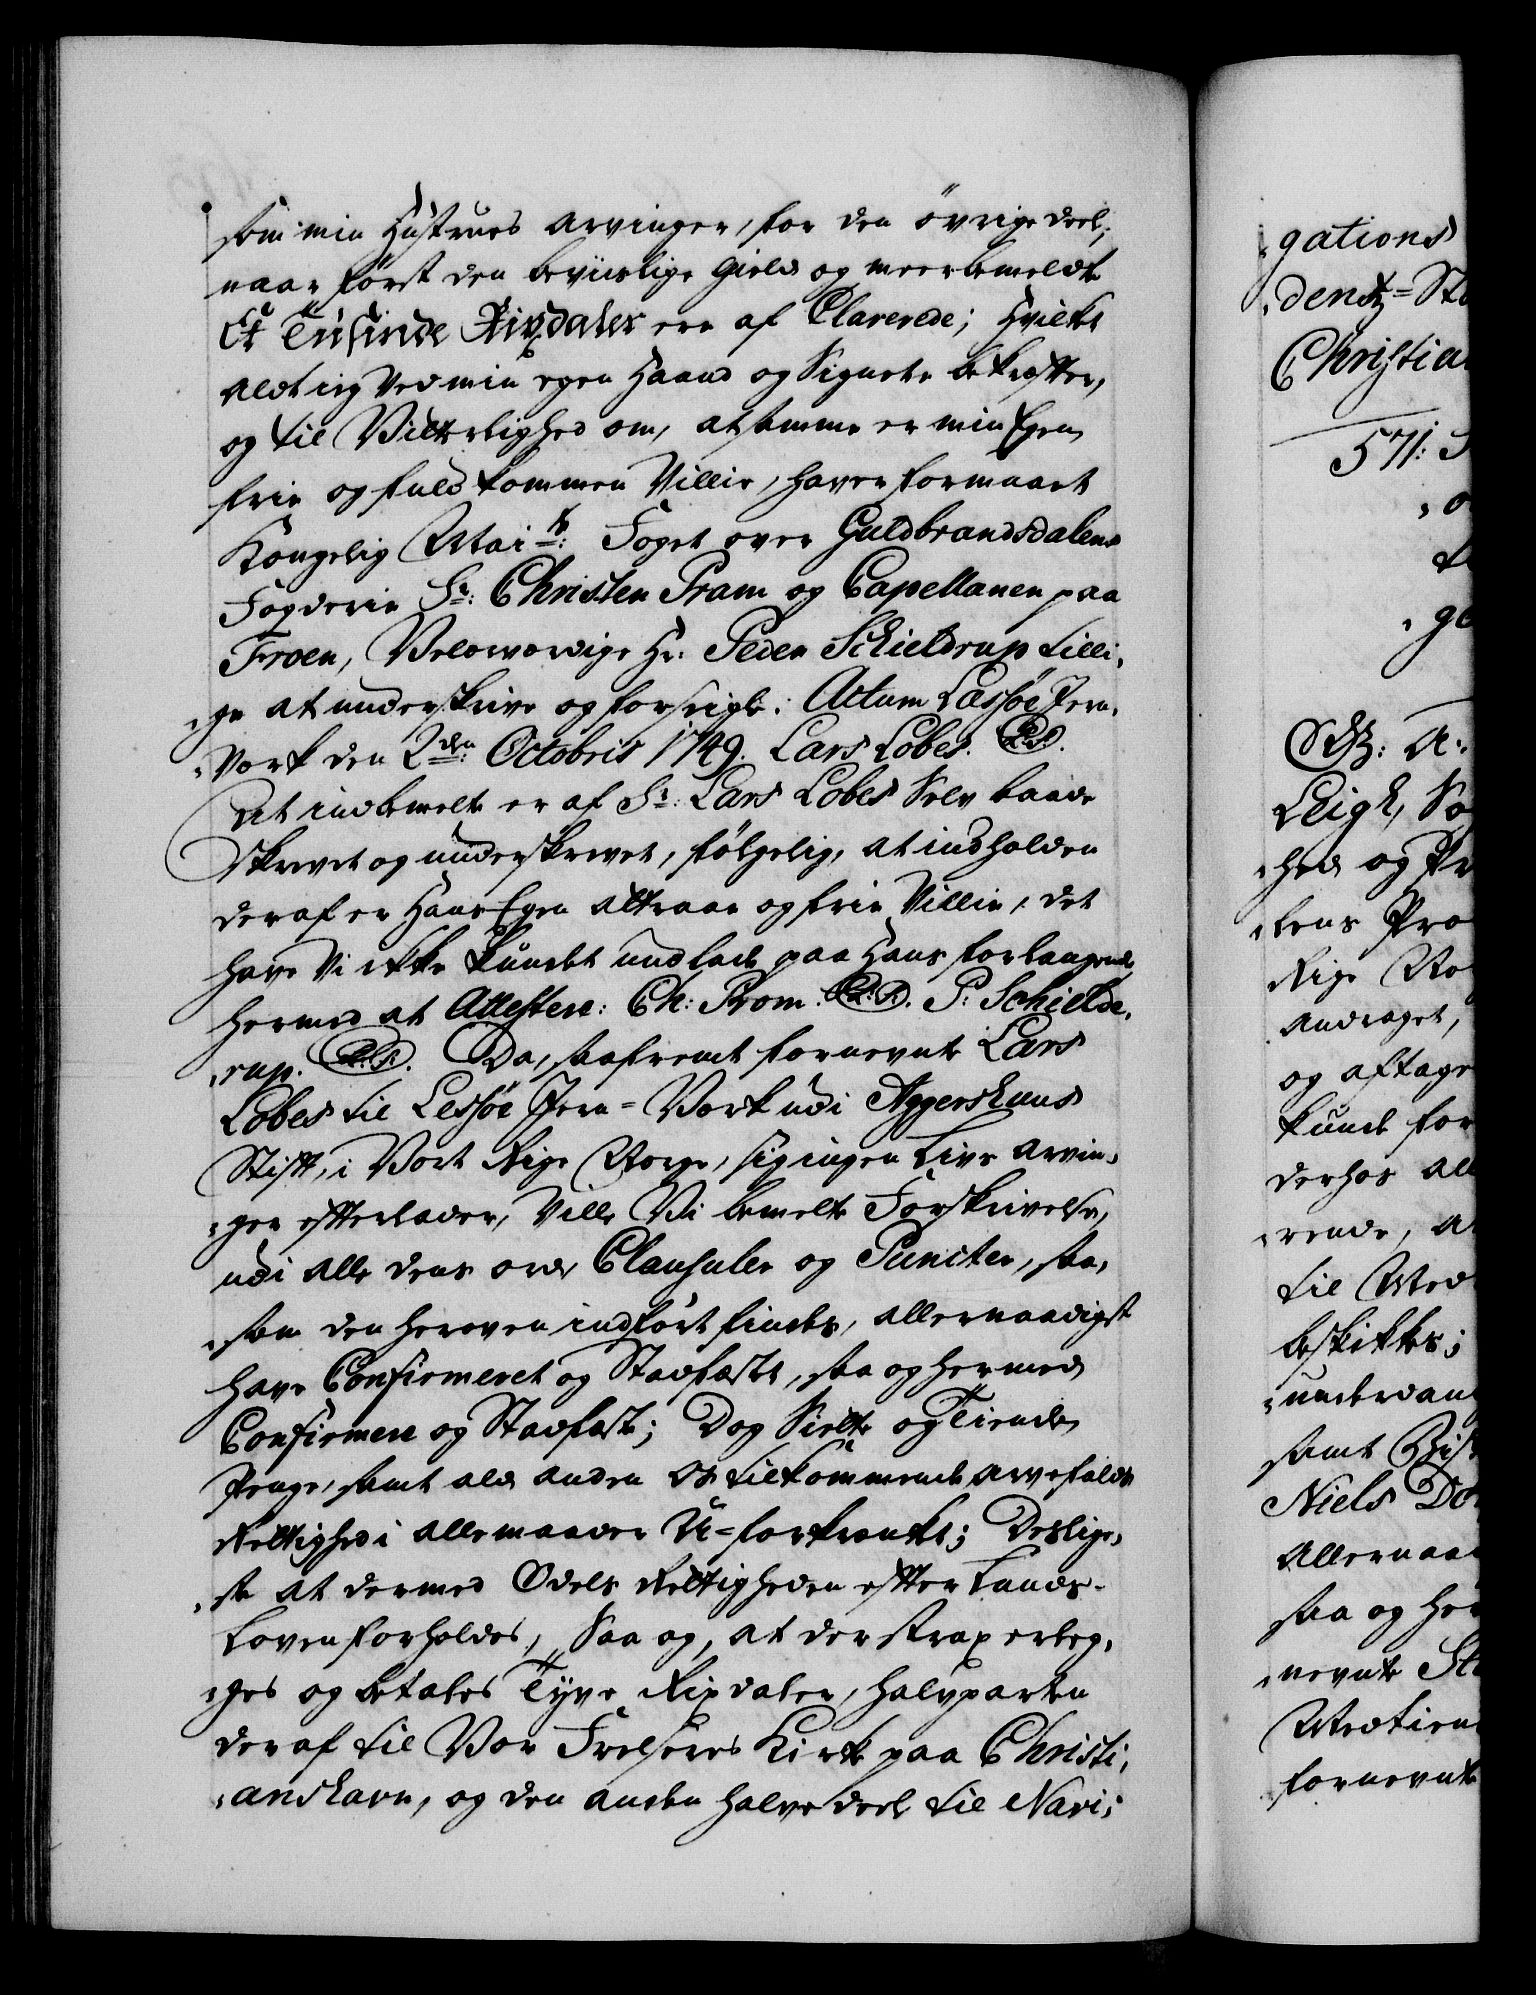 som min Hustrues Arvinger, for den övrige deel,
naar först den beviislige Gield og meerbemeldte
Et Tusinde Rixdaler ere af Clarerede; Hvilket
aldt ieg Ved min egen Haand og Signete bekrefter,
og til Vitterlighed om, at samme er min Egen
frie og fuldkommen Villie, haver formaaet
Kongelig Mai:ts Foget over Guldbrandsdalens
Fogderie Sr: Christen Pram og Capellanen paa
Froen, Velærværdige Hr: Peder Schieldrup tilli,
,ge at underskrive og forseigle. Actum Lessøe Jern,
,Værk den 2den Octobris 1749. Lars Lobes. (L.S.)
At indbemelte er af Sr: Lars Lobes Selv baade
skrevet og underskrevet, følgelig, at indholden
deraf er Hans Egen attraae og frie Villie, det
have Vi ikke kundet undlade paa Hans forlangende
hermed at Attestere: Ch: Pram. (L.S.) P: Schield,
,rup. (L.S.) Da, saafremt fornevnte Lars
Lobes til Lessøe Jern-Værk udi Aggershuus
Stift, i Vort Rige Norge, sig ingen Livs Arvin,
,ger efterlader, Ville Vi bemelte Forskrivelse,
udi alle dens ord, Clausuler og Puncter, saa,
,som den heroven indført findes, allernaadigst
have Confirmeret og Stadfæstet, saa og hermed
Confirmere og Stadfæste; Dog Siette og Tiende
Penge, samt ald anden Os tilkommende arvefalds
Rettighed i alle maader U-forkrænket; Deslige,
,ste at dermed Odels Rettigheden efter Lands-
Loven forholdes, Saa og, at der strax erleg,
,ges og betales Tyve Rixdaler, halvparten
deraf til Vor Frelseres Kirke paa Christi,
,anshavn, og den anden halve deel til Navi,
gations
denz-St
Christia
571: S
A:
Leigh, So
,hed og Pr
,tens Pro
Rige No
andraget,
og aftage
kunde for
derhos all
,rende, a
til Med
beskikkes;
,underdan
samt Bis
Niels Do
Allernaa
saa og her
,nevnte St
Medtien
fornevnte